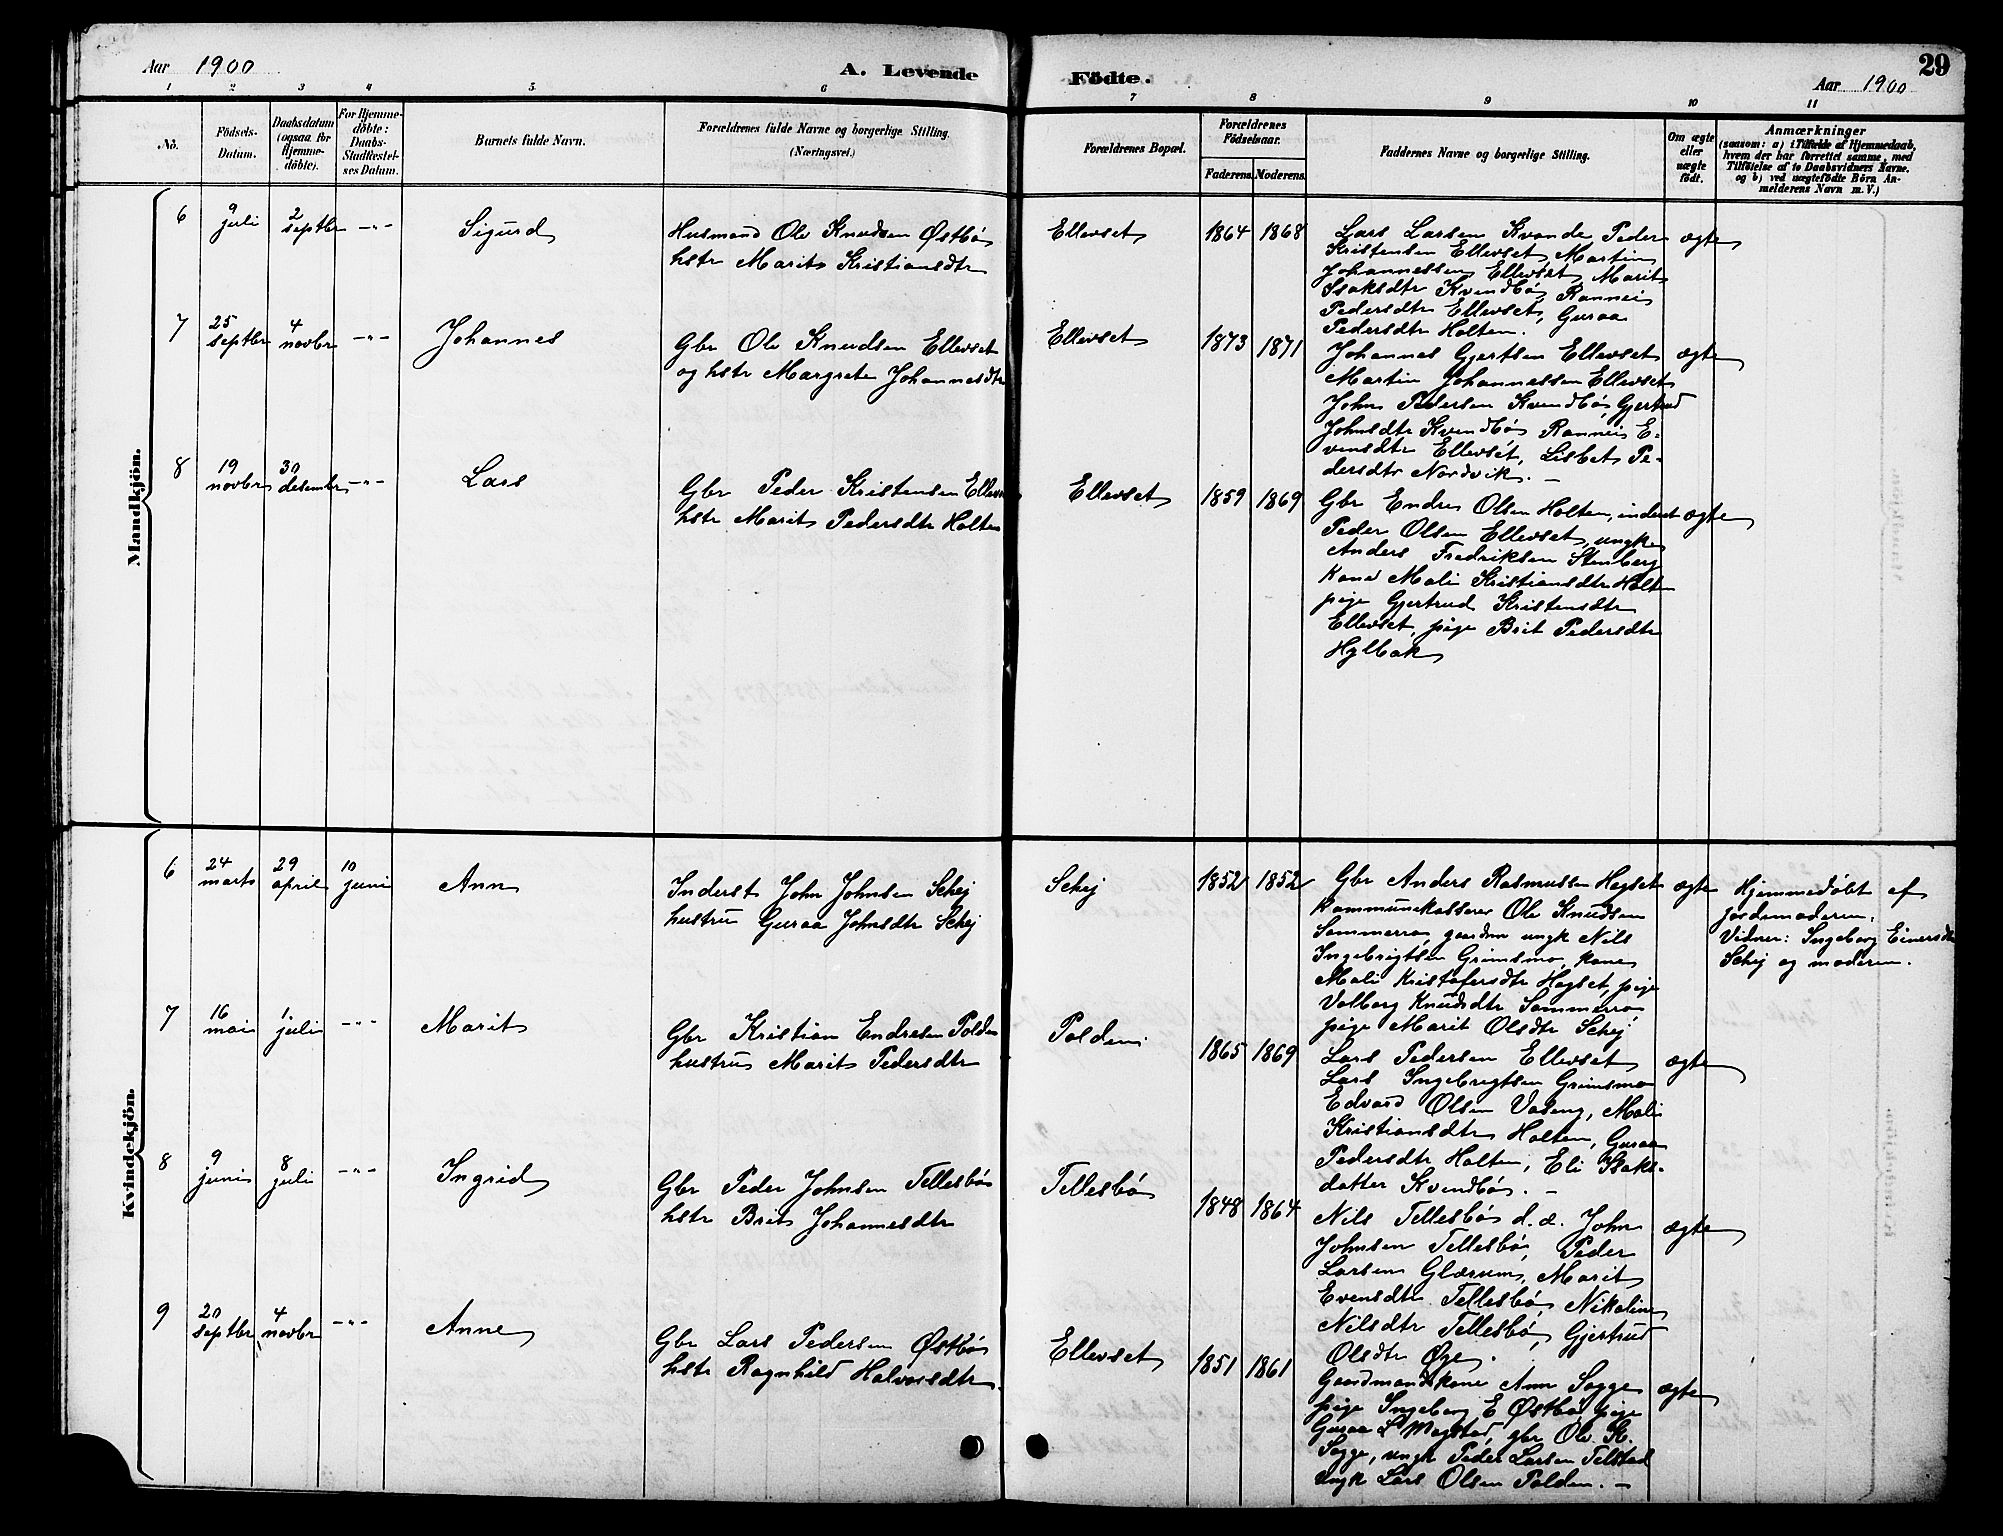 Aar 1900
A. Levende
Födte.
29
Aar 1900
1 2 3 4 5 6 7 8 9 10 11
No.
Födsels-
Datum.
Daabsdatum
(ogsaa for
Hjemme-
döbte).
For Hjemme-
döbte:
Daabs-
Stadfæstel-
ses Datum.
Barnets fulde Navn.
Forældrenes fulde Navne og borgerlige Stilling.
(Næringsvei.)
Forældrenes Bopæl.
Forældrenes
Födselsaar.
Faderens. Moderens.
Faddernes Navne og borgerlige Stilling.
Om ægte
eller
uægte
födt.
Anmærkninger
(saasom: a) i Tilfælde af Hjemmedaab,
hvem der har forrettet samme, med
Tilföielse af to Daabsvidners Navne,
og b) ved uægtefödte Börn An-
melderens Navn m. V.)
Mandkjön.
6
9
juli
2
septbr
-"-
Sigurd
Husmand Ole Knudsen Østbø
hstr Marit Kristiansdtr
Ellevset
1864 1868
Lars Larsen Kvande Peder
Kristensen Ellevset, Martin
Johannessen Ellevset, Marit
Isaksdtr Kvendbø, Rannei
Pedersdtr Ellevset, Guraa
Pedersdtr Holten.
ægte
7
25
septbr
4
novbr
-"-
Johannes
Gbr Ole Knudsen Ellevset
og hstr Margrete Johannesdtr
Ellevset
1873 1871
Johannes Gjertsen Ellevset
Martin Johannessen Ellevset
John Pedersen Kvendbø, Gjertrud
Johnsdtr Kvendbø Rannei E-
vensdtr Ellevset, Lisbet Pe-
dersdtr Nordvik. -
ægte
8
19
novbr
30
desembr
-"-
Lars
Gbr Peder Kristensen Ellevs
hstr Marit Pedersdtr Holten
Ellevset
1859 1869
Gbr Endre Olsen Holten, inderst
Peder Olsen Ellevset, ungk
Anders Fredriksen Stenberg
Kone Mali Kristiansdtr Holten
pige Gjertrud Kristensdtr
Ellevset, pige Brit Pedersdtr
Hylbak
ægte
Kvindekjön.
6
24
marts
29
april
10
juni
Ann
Inderst John Johnsen Schej
hustru Guraa Johnsdtr Schej
Schej
1852 1852
Gbr Anders Rasmussen Hegset
Kommunekasserer Ole Knudsen
Sommerro, gaardm ungk Nils
Ingebrigtsen Grimsmo, kone
Mali Kristofersdtr Hegset, pige
Valborg Knudsdtr Sommerro
pige Marit Olsdtr Schej
ægte
Hjemmedøbt af
jordemoderen.
Vidner: Ingeborg Einersdtr
Schej og moderen.
7
16
mai
1.
juli
-"-
Marit
Gbr Kristian Endresen Polden
hustru Marit Pedersdtr
Polden
1865 1869
Lars Pedersen Ellevset
Lars Ingebrigtsen Grimsmo
Edvard Olsen Vaseng, Mali
Kristiansdtr Holten, Guraa
Pedersdtr Holten, Eli Isaks-
datter Kvendbø. -
ægte
8
9
juni
8
juli
-"-
Ingrid
Gbr Peder Johnsen Tellesbø
hstr Brit Johannesdtr
Tellesbø
1848 1864
Nils Tellesbø d. æ. John
Johnsen Tellesbø, Peder
Larsen Glærum, Marit
Evensdtr Tellesbø, Nikoline
Nilsdtr Tellesbø, Gjertrud
Olsdtr Øye.
ægte
9
20
septbr
4
novbr
-"-
Anne
Gbr Lars Pedersen Østbø
hstr Ragnhild Halvorsdtr.
Ellevset
1851 1861
Gaardmandskone Ann Sogge
pige Ingeborg E Østbø, pige
Guraa L Mogstad, gbr Ole K.
Sogge, ungk Peder Larsen Telstad
ungk Lars Olsen Polden. -
ægte